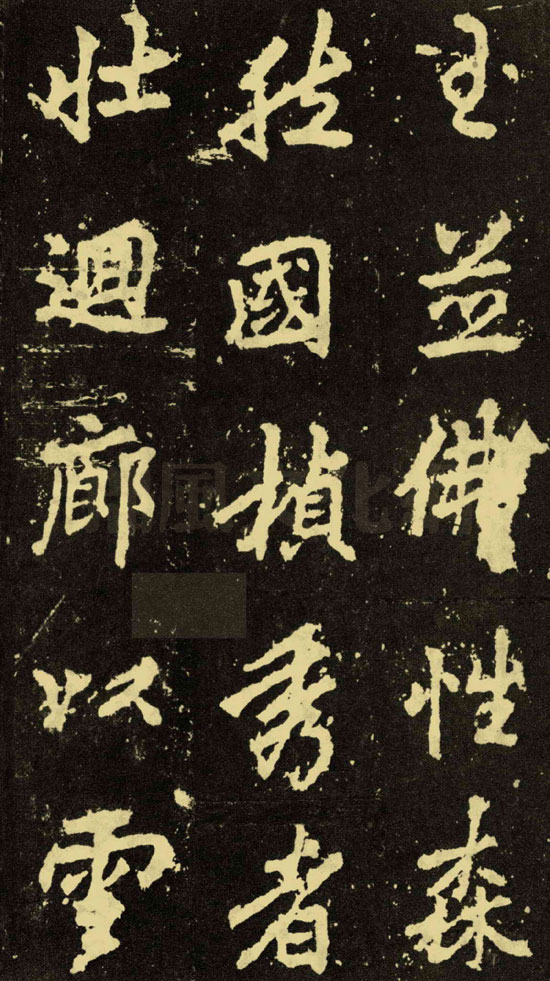 玉並佛性森
國楨秀者
壯迴廊以雲